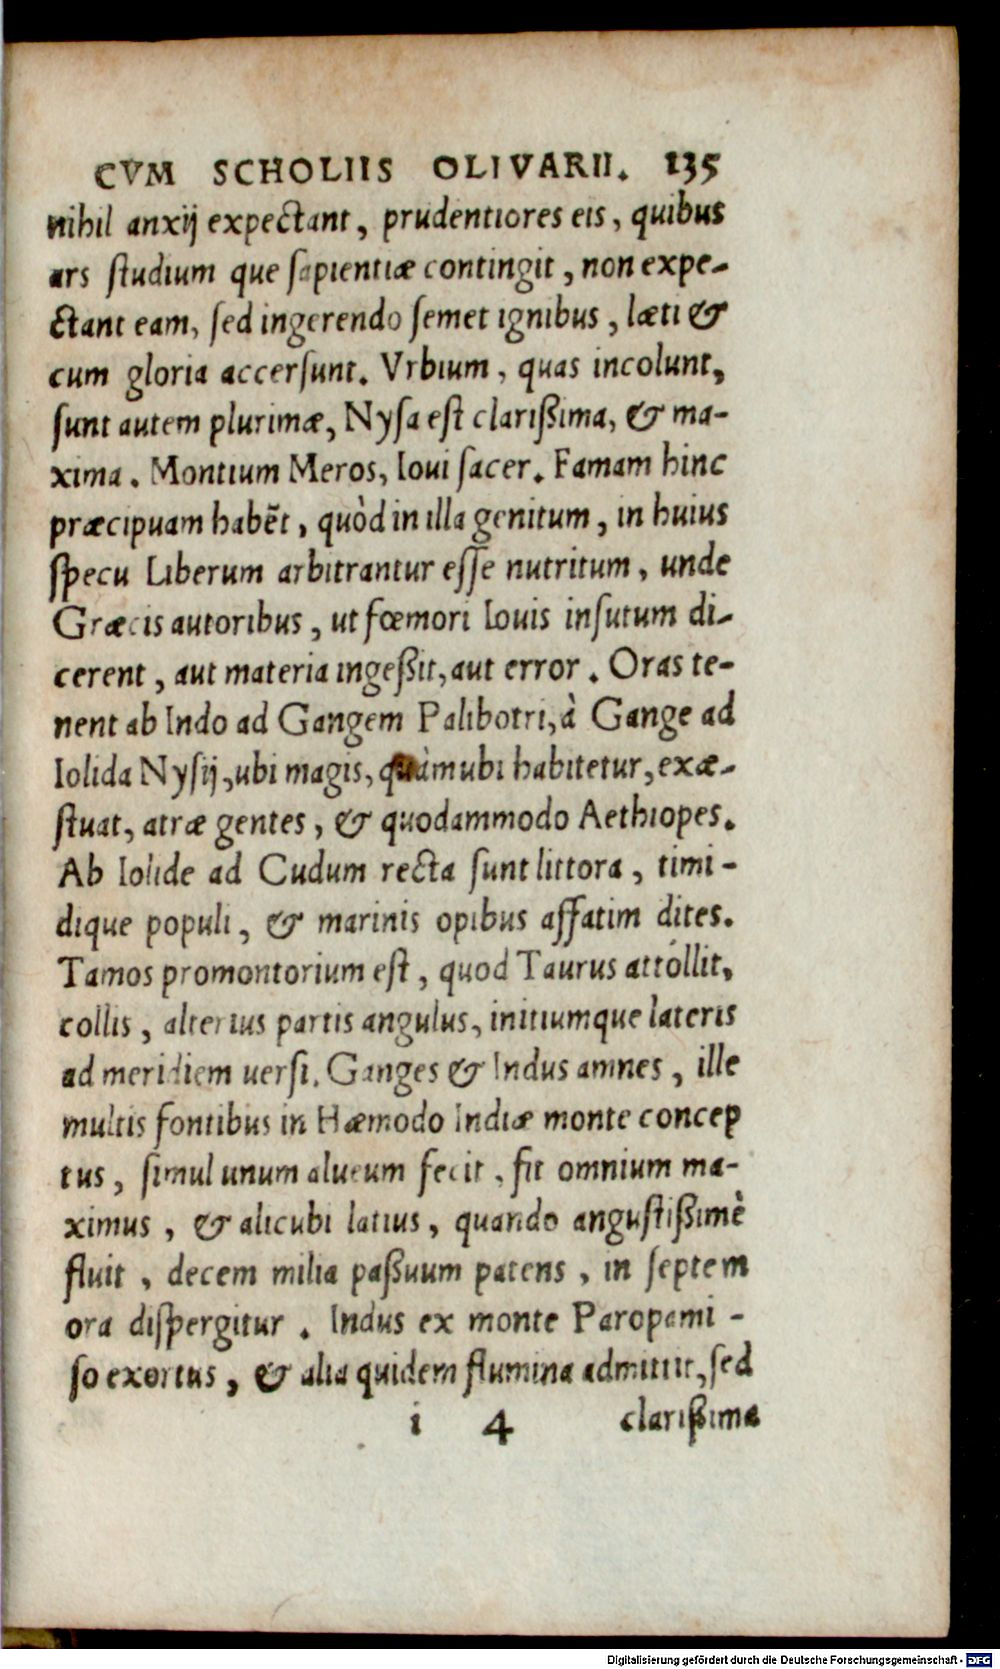 CVM SCHOLIIS OLIVARII. 135
nihil anxij expectant, prudentiores eis, quibus
ars studium que sapientiæ contingit, non expe-
ctant eam, sed ingerendo semet ignibus, læti &
cum gloria accersunt. Vrbium, quas incolunt,
sunt autem plurimæ, Nysa est clarißima, & ma-
xima. Montium Meros, Ioui sacer. Famam hinc
præcipuam habẽt, quòd in illa genitum, in huius
specu Liberum arbitrantur esse nutritum, unde
Græcis autoribus, ut fœmori Iouis insutum di-
cerent, aut materia ingeßit, aut error. Oras te-
nent ab Indo ad Gangem Palibotri, à Gange ad
Iolida Nysij, ubi magis, quàm ubi habitetur, exæ-
stuat, atræ gentes, & quodammodo Aethiopes.
Ab Iolide ad Cudum recta sunt littora, timi-
dique populi, & marinis opibus affatim dites.
Tamos promontorium est, quod Taurus attóllit,
collis, alterius partis angulus, initiumque lateris
ad meridiem uersi. Ganges & Indus amnes, ille
multis fontibus in Hæmodo Indiæ monte concep
tus, simul unum alueum fecit, fit omnium ma-
ximus, & alicubi latius, quando angustißimè
fluit, decem milia paßuum patens, in septem
ora dispergitur. Indus ex monte Paropami-
so exortus, & alia quidem flumina admittit, sed
i 4 clarißima
Digitalisierung gefördert durch die Deutsche Forschungsgemeinschaft - DFG